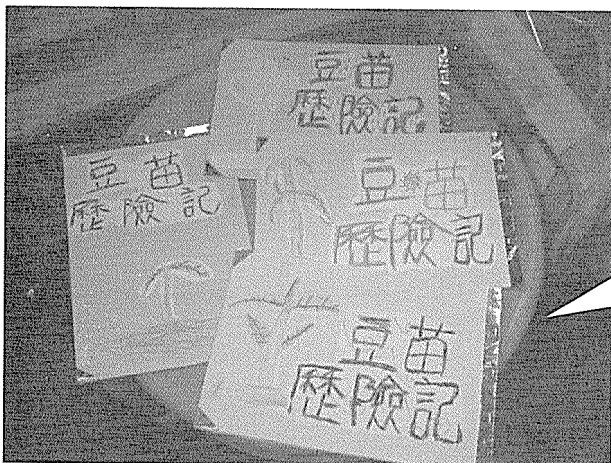 豆苗
歷險記
豆苗
歷險記
豆苗
歷險記
豆苗
歷險記